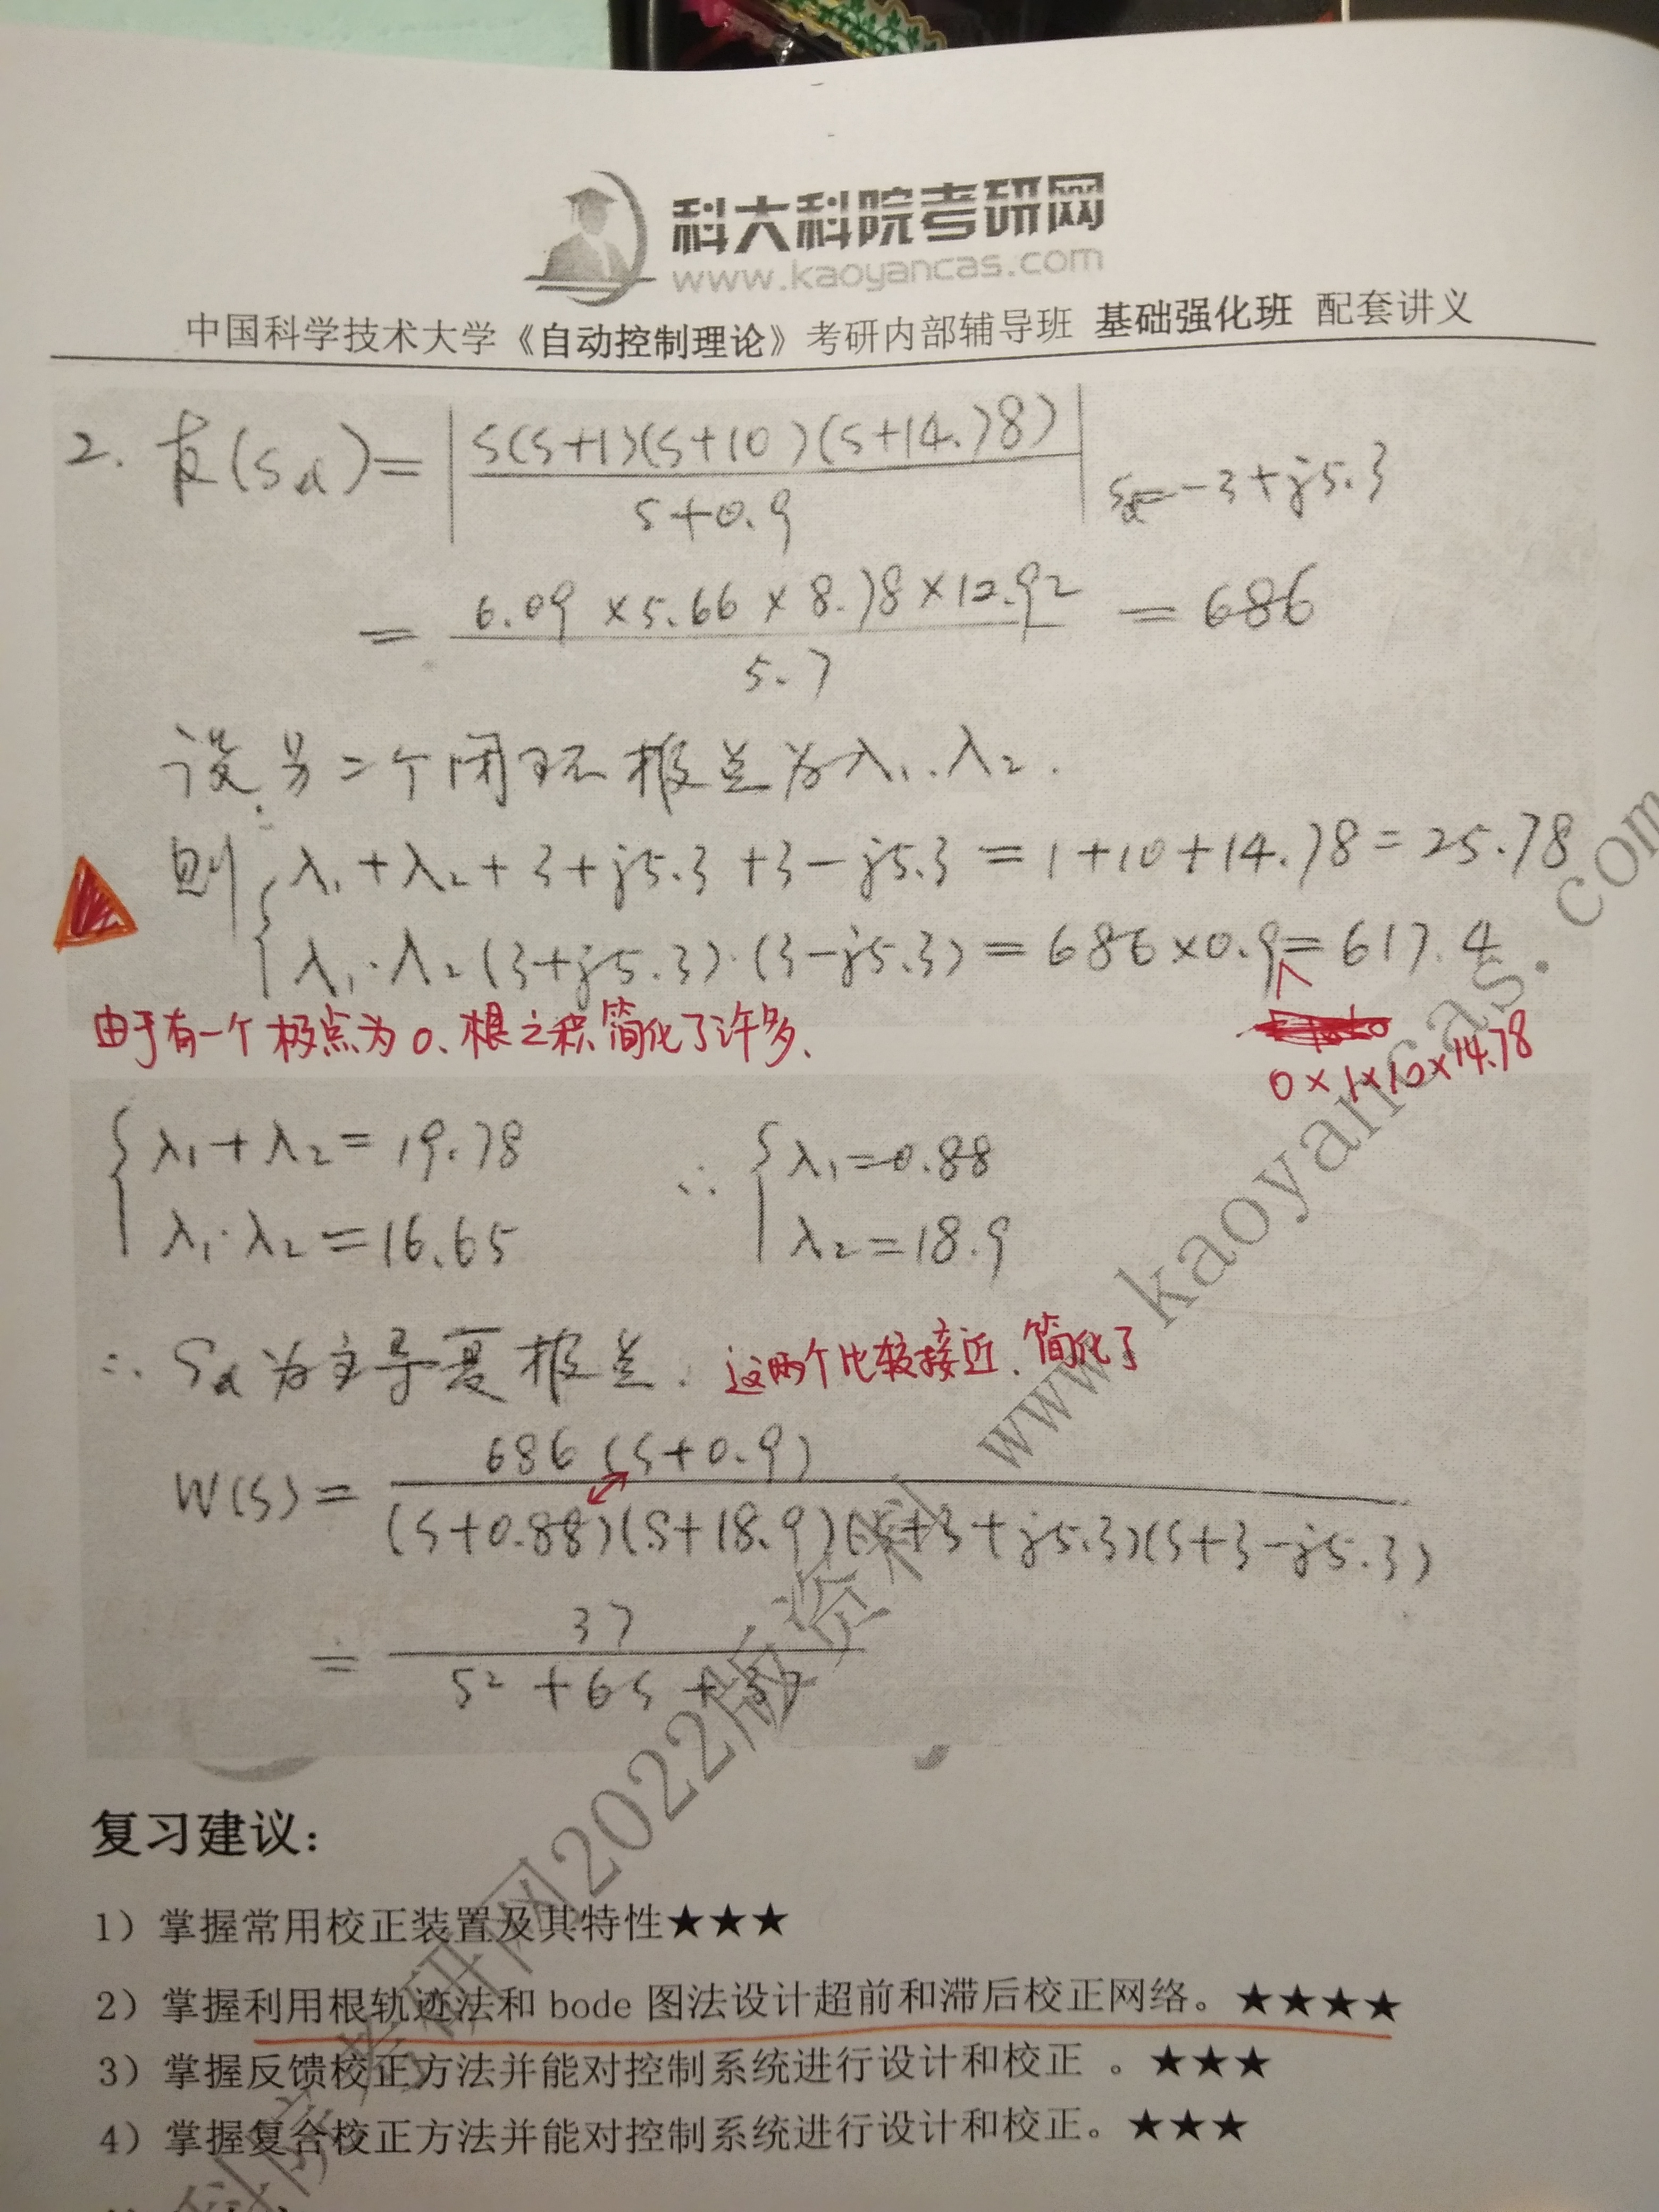 科大科院考研网
www.kaoyancas.com
中国科学技术大学《自动控制理论》考研内部辅导班 基础强化班 配套讲义
2. k(s_d)= |s(s+1)(s+10)(s+14.78) / s+0.9| s_d=-3+j5.3
= 6.09×5.66×8.78×12.92 / 5.7 = 686
设另二个闭环极点为λ₁.λ₂.
则{λ₁+λ₂+3+j5.3+3-j5.3=1+10+14.78=25.78
λ₁·λ₂(3+j5.3)·(3-j5.3)=686×0.9=617.4
由于有一个极点为0、根之积简化了许多、
0×1×10×14.78
{λ₁+λ₂=19.78 ∴ {λ₁=0.88
λ₁·λ₂=16.65 λ₂=18.9
∴ S_d为主导复极点. 这两个比较接近、简化了
W(s)= 686(s+0.9) / (s+0.88)(s+18.9)(s+3+j5.3)(s+3-j5.3)
= 37 / s²+6s+37
复习建议：
1）掌握常用校正装置及其特性★★★
2）掌握利用根轨迹法和 bode 图法设计超前和滞后校正网络。★★★★
3）掌握反馈校正方法并能对控制系统进行设计和校正 。★★★
4）掌握复合校正方法并能对控制系统进行设计和校正。★★★
科院考研网2022版资料 www.kaoyancas.com